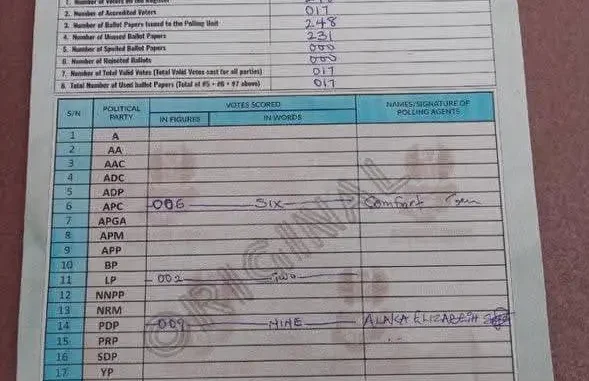 1. Number of Voters on the Register
2. Number of Accredited Voters 017
3. Number of Ballot Papers Issued to the Polling Unit 248
4. Number of Unused Ballot Papers 231
5. Number of Spoiled Ballot Papers 000
6. Number of Rejected Ballots 000
7. Number of Total Valid Votes (Total Valid Votes cast for all parties) 017
8. Total Number of Used ballot Papers (Total of #5 + #6 + #7 above) 017
S/N POLITICAL PARTY VOTES SCORED NAMES/SIGNATURE OF POLLING AGENTS
IN FIGURES IN WORDS
1 A
2 AA
3 AAC
4 ADC
5 ADP
6 APC 006 SIX Comfort
7 APGA
8 APM
9 APP
10 BP
11 LP 002 Two
12 NNPP
13 NRM
14 PDP 009 NINE ALAKA ELIZABETH
15 PRP
16 SDP
17 YP
ORIGINAL